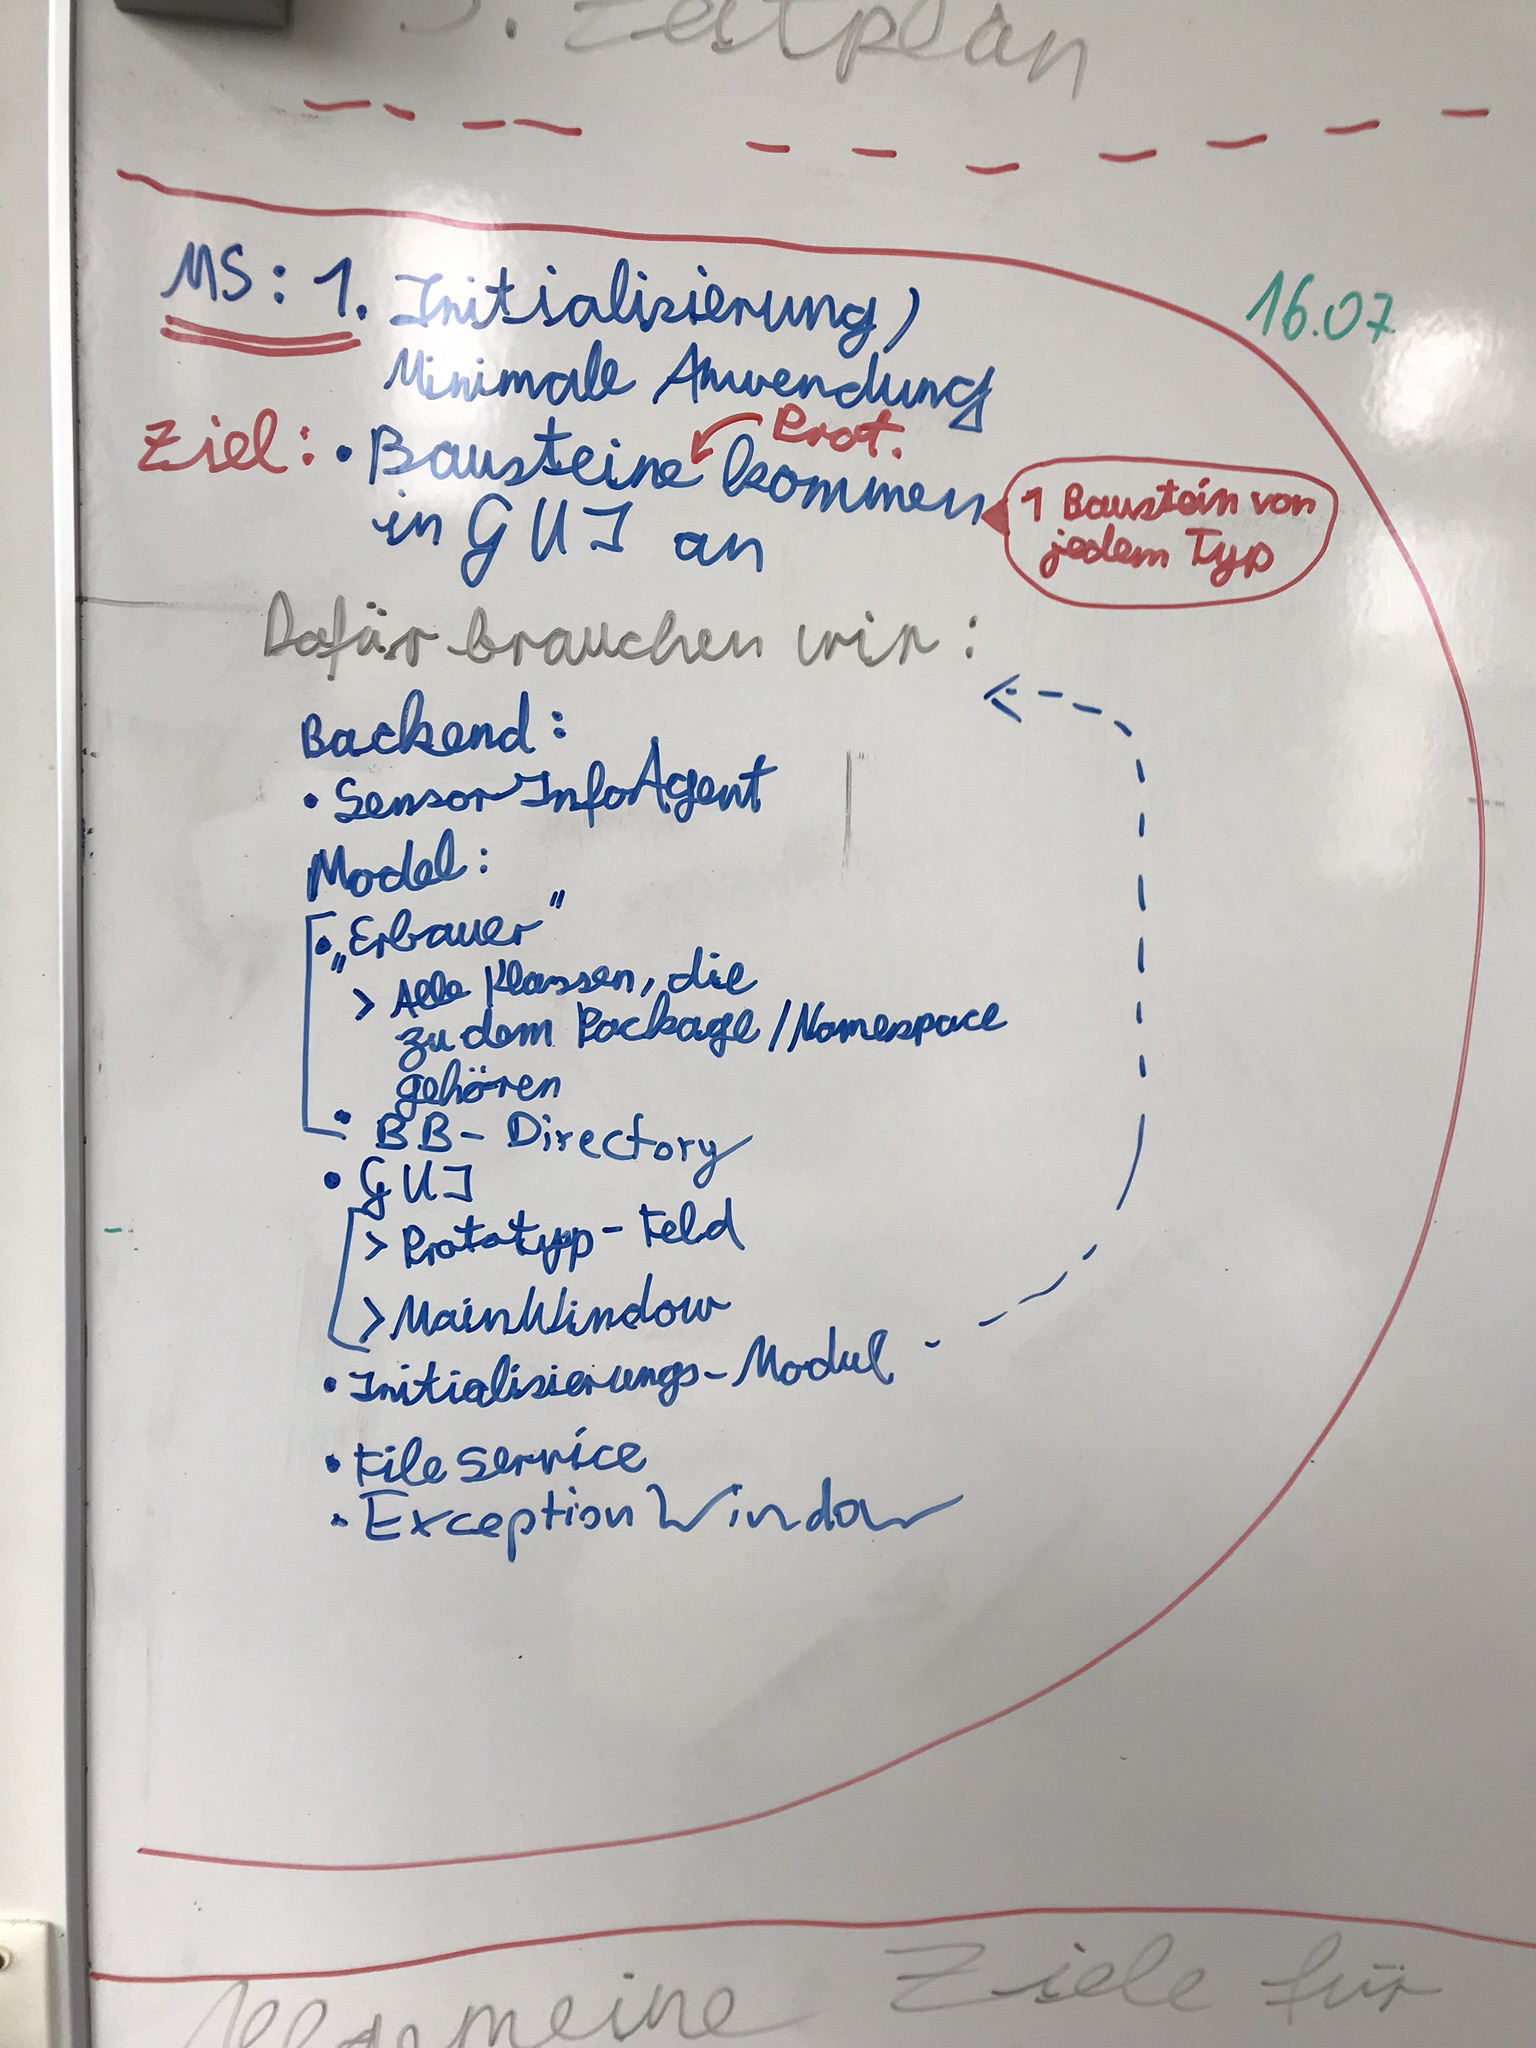 3. Zeitplan
16.07
MS: 1. Initialisierung /
Minimale Anwendung
Prot.
Ziel: • Bausteine kommen
in GUI an
1 Baustein von
jedem Typ
Dafür brauchen wir:
Backend:
• SensorInfoAgent
Model:
• „Erbauer"
> Alle Klassen, die
zu dem Package/Namespace
gehören
• BB-Directory
• GUI
> Prototyp-Feld
> MainWindow
• Initialisierungs-Modul
• FileService
• ExceptionWindow
Allgemeine Ziele für